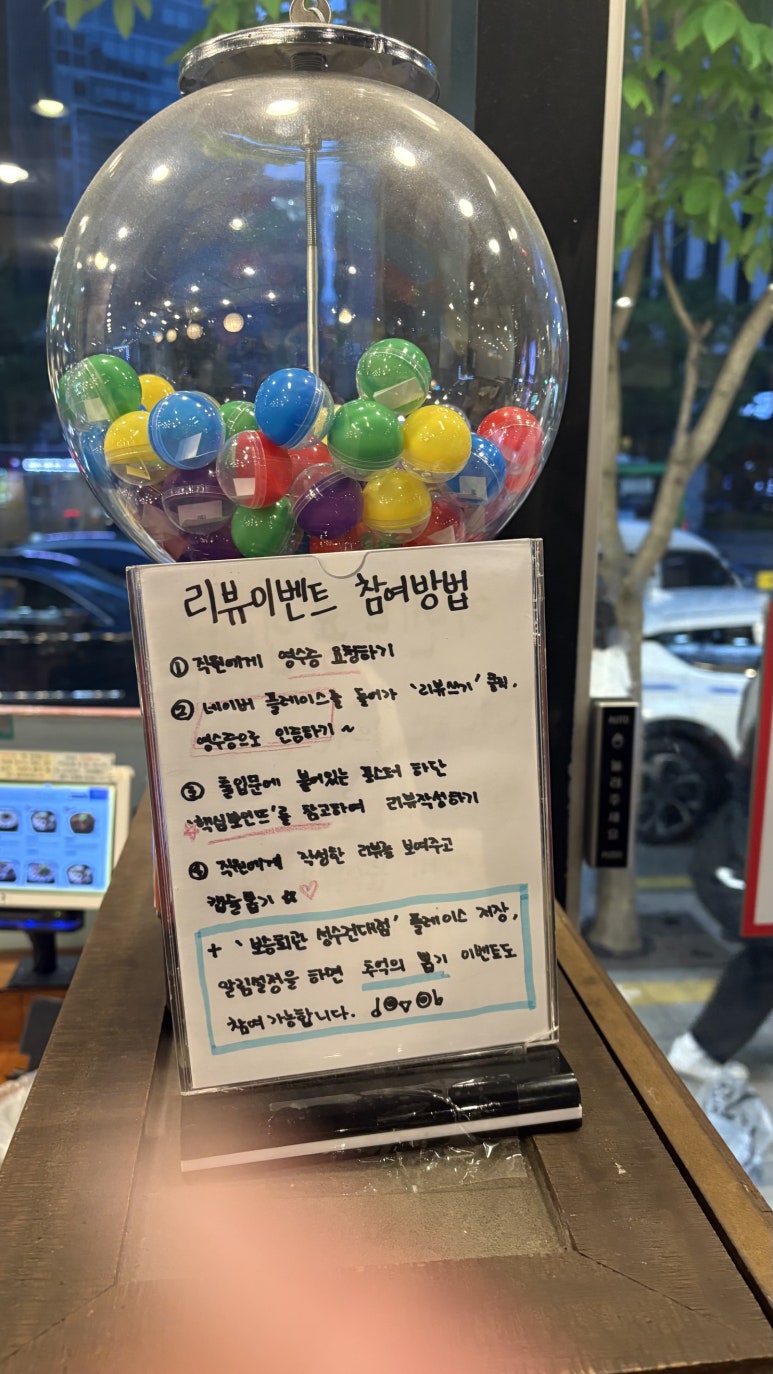 리뷰이벤트 참여방법
① 직원에게 영수증 요청하기
② 네이버 플레이스를 들어가 '리뷰쓰기' 클릭.
영수증으로 인증하기 ~
③ 출입문에 붙어있는 포스터 하단
'핵심포인트'를 참고하여 리뷰작성하기
④ 직원에게 작성한 리뷰를 보여주고
캡슐뽑기 ☆ ♡
+ '보승회관 성수건대점' 플레이스 저장,
알림설정을 하면 추억의 뽑기 이벤트도
참여 가능합니다.
AUTO
눌러주세요